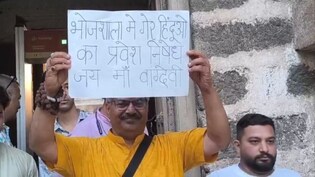 भोजशाला मे गैर हिंदुओ
का प्रवेश निषेध
जय माँ वाग्देवी